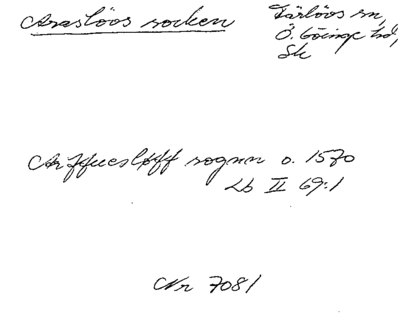 Araslöös socken
Färlöos sn,
Ö. Göinge hd,
Sk
Arffueslöff sognn o. 1570
Lb II 69:1
Nr 7081